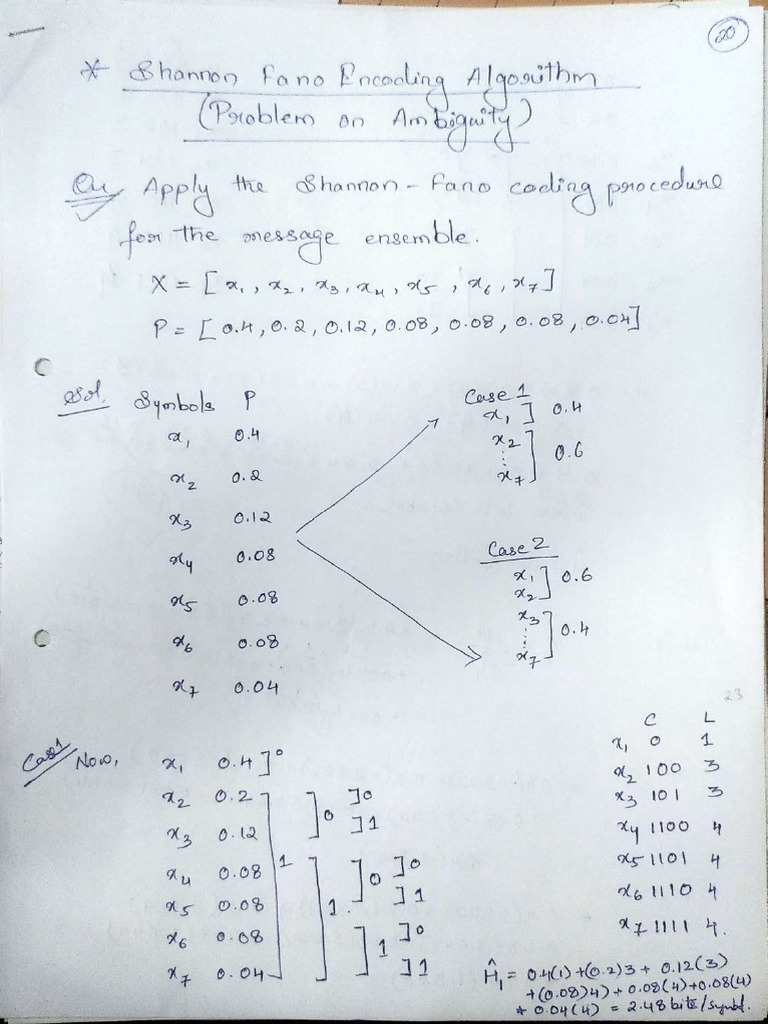 20
* Shannon Fano Encoding Algorithm
(Problem on Ambiguity)
Qu Apply the Shannon-Fano coding procedure
for the message ensemble.
X = [x₁, x₂, x₃, x₄, x₅, x₆, x₇]
P = [0.4, 0.2, 0.12, 0.08, 0.08, 0.08, 0.04]
Sol. Symbols P
x₁ 0.4
x₂ 0.2
x₃ 0.12
x₄ 0.08
x₅ 0.08
x₆ 0.08
x₇ 0.04
Case 1
x₁ ] 0.4
x₂
⋮ ] 0.6
x₇
Case 2
x₁ ] 0.6
x₂
x₃
⋮ ] 0.4
x₇
23
Case1 Now,
x₁ 0.4 ] 0
x₂ 0.2 ] 0 ] 0
x₃ 0.12 ] 1
x₄ 0.08 1 ] 0 ] 0
x₅ 0.08 1 ] 1
x₆ 0.08 ] 1 ] 0
x₇ 0.04 ] 1
C L
x₁ 0 1
x₂ 100 3
x₃ 101 3
x₄ 1100 4
x₅ 1101 4
x₆ 1110 4
x₇ 1111 4.
Ĥ₁ = 0.4(1) + (0.2)3 + 0.12(3)
+(0.08)4) + 0.08(4) + 0.08(4)
+ 0.04(4) = 2.48 bits/symbol.